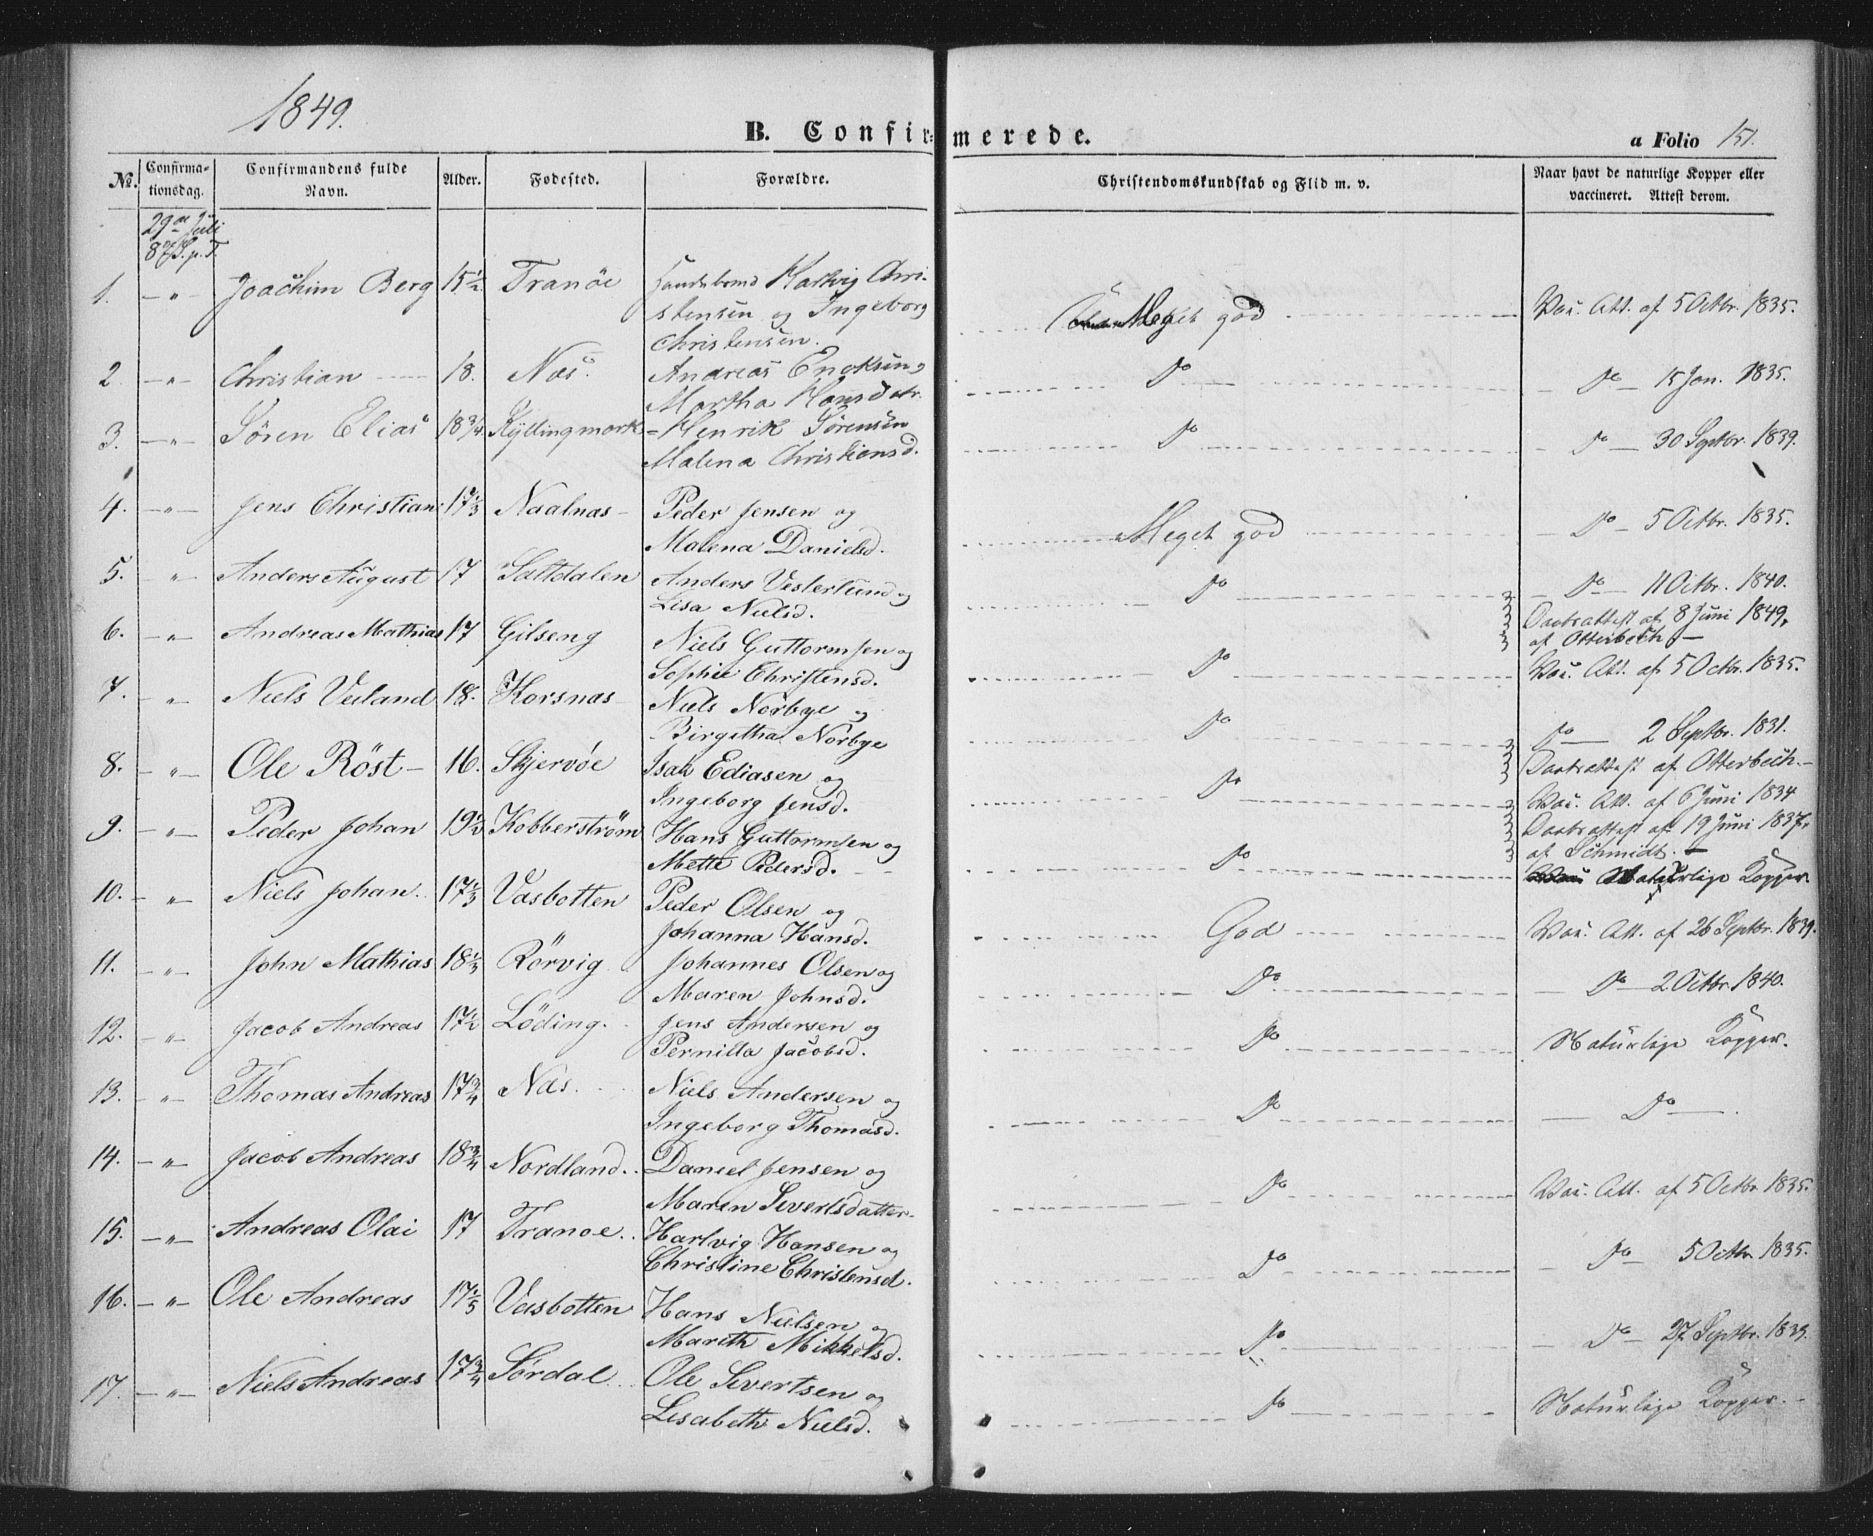 1849.
B. Confirmerede.
a Folio 151.
No. Confirmationsdag. Confirmandens fulde Navn. Alder. Fødested. Forældre. Christendomskundskab og Flid m. v. Naar havt de naturlige Kopper eller vaccineret. Attest derom.
29de Juli
8 S. p. T.
1. -"- Joachim Berg 15½ Tranöe Hartvig Chri-
stensen og Ingeborg
Christensen. Meget god Vac. Att. af 5 Octbr. 1835.
2. -"- Christian 18. Næs. Andreas
Martha Hansdatr. Do Do 15 Jan. 1835.
3. -"- Sören Elias 18¾ Kyllingmark Henrik Sörensen
Malena Christiensd. Do Do 30 Septbr. 1839.
4. -"- Jens Christian 17⅓ Naalnæs Peder Jensen og
Malena Danielsd. Meget god Do 5 Octbr. 1835.
5. " Anders August 17 Saltdalen Anders Vesterlund og
Lisa Nielsd. Do Do 11 Octbr. 1840.
6. -"- Andreas Mathias 17 Gilseng Niels Guttormsen og
Sophie Christensd. Do Daabsattest af 8 Juni 1849,
af Otterbech -
Vac. Att. af 5 Octbr. 1835.
7. " Niels Veiland 18. Korsnæs Niels Norbye og
Birgitha Norbye Do Do 2 Septbr. 1831.
8. -"- Ole Röst 16. Skjervöe Isak Ediasen og
Ingeborg Jensd. Do Daabsattest af Otterbech.-
Vac. Att. af 6 Juni 1834
9. -"- Peder Johan 19½ Kobberström Hans Guttormsen og
Mette Pedersd. Do Daabsattest af 19 Juni 1837,
af Schmidt. -
Naturlige Kopper.
10. -"- Niels Johan. 17⅓ Vasbotten Peder Olsen og
Johanna Hansd. God Vac. Att. af 26 Septbr. 1839.
11. -"- John Mathias 18⅓ Rörvig Johannes Olsen og
Maren Johnsd. Do Do 2 Octbr. 1840.
12. -"- Jacob Andreas 17½ Löding. Jens Andersen og
Pernilla Jacobsd. Do Naturlige Kopper.
13. -"- Thomas Andreas 17¾ Næs. Niels Andersen og
Ingeborg Thomasd. Do Do
14. -"- Jacob Andreas 18¾ Nordland. Daniel Jensen og
Maren Severtsdatter Do Vac. Att. af 5 Octbr 1835.
15. -"- Andreas Olai 17 Tranoe. Hartvig Hansen og
Christine Christensd. Do Do 5 Octbr. 1835.
16. -"- Ole Andreas 17⅕ Vasbotten Hans Nielsen og
Mareth Mikkelsd. Do Do 27 Septbr. 1839.
17. -"- Niels Andreas 17¾ Sördal Ole Severtsen og
Lisabeth Nielsd. Do Naturlige Kopper.